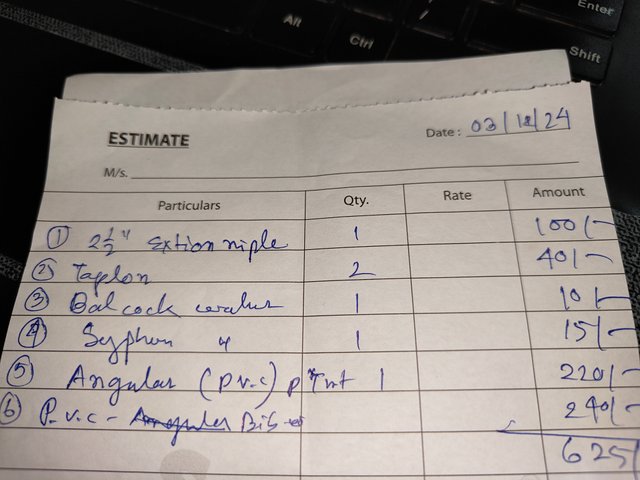 Alt
Ctrl
Enter
Shift
ESTIMATE
Date : 03/12/24
M/s.
Particulars Qty. Rate Amount
① 2½" Extion niple 1 100/-
② Taplon 2 40/-
③ Bal cock washer 1 10/-
④ Syphon " 1 15/-
⑤ Angular (p v.c) 1 220/-
⑥ P.v.c - Angular Bib 240/-
625/